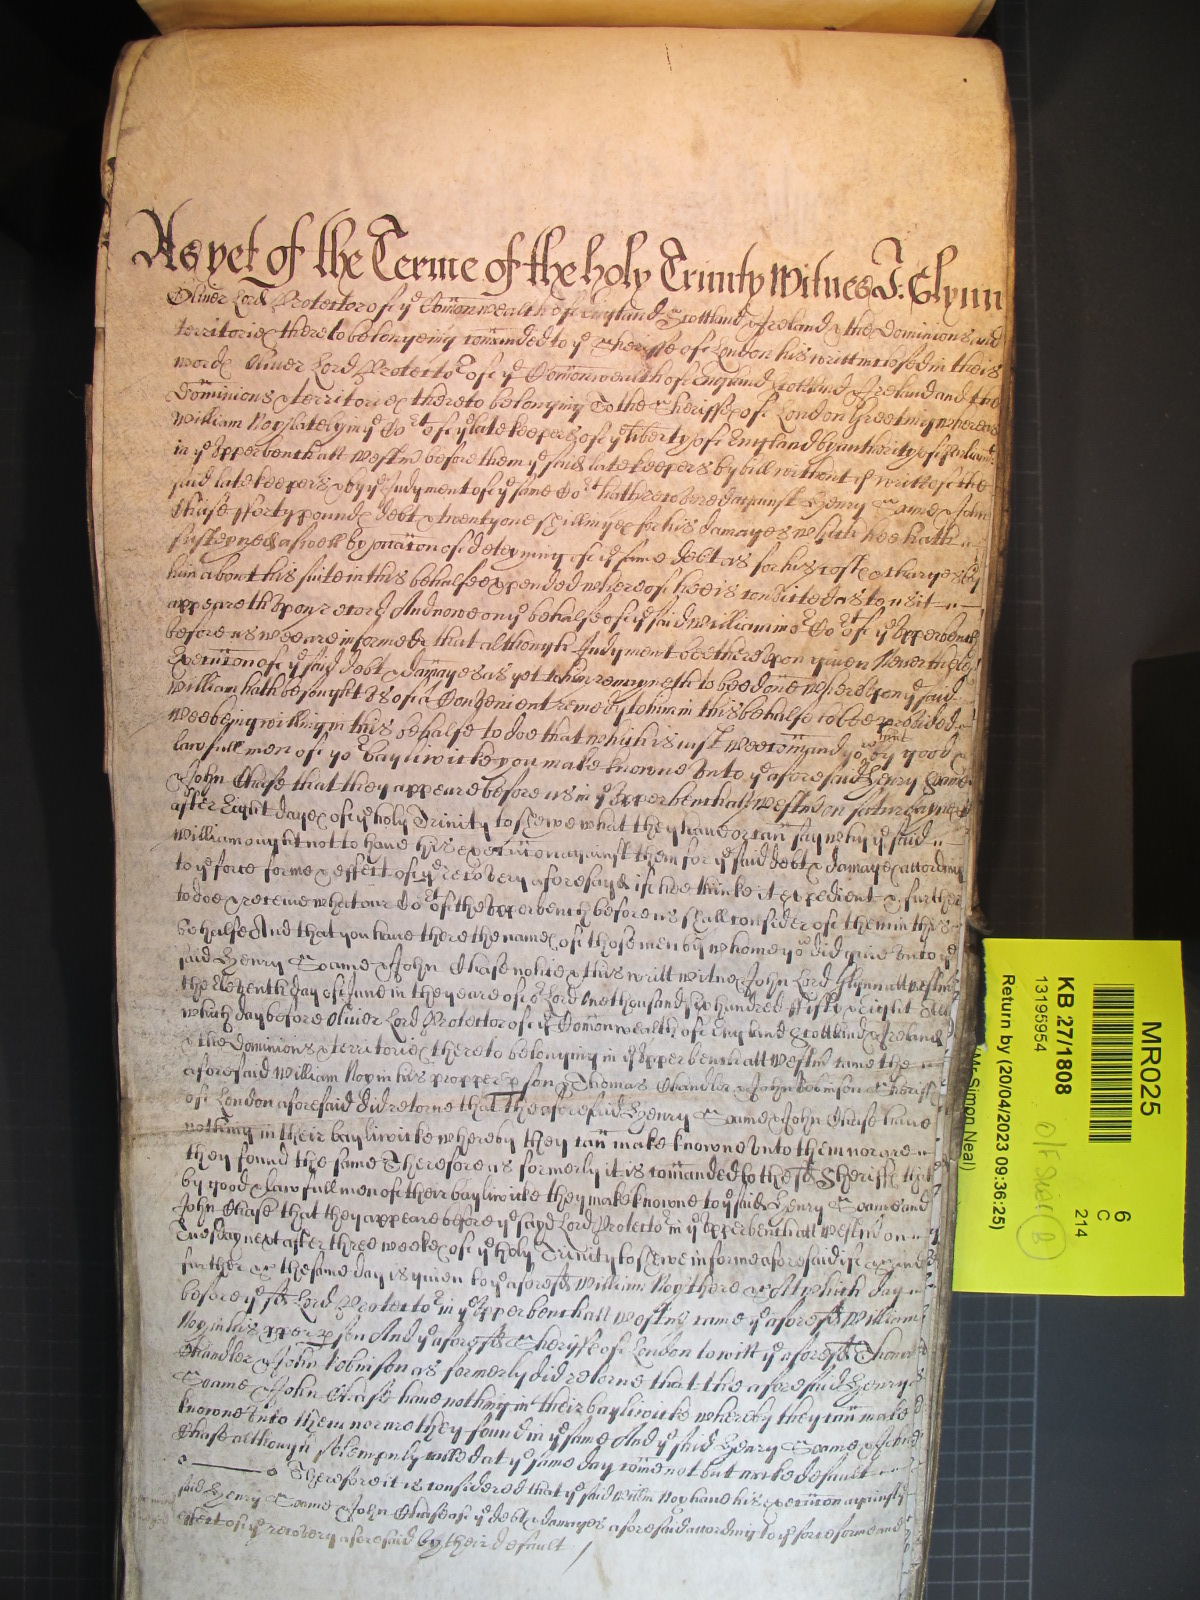 As yet of the Terme of the holy Trinity Witnes J: Glynn
Oliver Lord Protector of ye Comonwealth of England Scotland & Ireland & the Dominions and
territories thereto belongeing comanded to ye Sheriffe of London his writt inclosed in theis
words Oliver Lord Protector of ye Comonwealth of England Scotland & Ireland and the
Dominions & territories thereto belonging To the Sheriffes of London Greeting whereas
William Noy lately in ye Cort of ye late keepers of ye liberty of England by authority of Parliamt
in ye Upper bench att Westmr before them ye said late keepers by bill without ye writt of the
said late keepers & by ye Judgment of ye same Cort hath recovered against Henry Soame & John
Chase fforty pounds debt & twenty one shillings for his damages which hee hath
susteyned aswell by occasion of deteyning of ye same debt as for his costs & charges by
him about his suite in this behalfe expended whereof hee is convicted as to us it
appeareth upon record And nowe on ye behalfe of ye said William in or Cort of ye Upper bench
before us wee are informed that although Judgment bee thereupon given Neverthelesse
Execution of ye said debt & damages as yet to him remayneth to bee done whereupon ye said
William hath besought us of a Convenient remedy to him in this behalfe to bee provided
Wee being willing in this behalfe to doe that which is just Wee comand you that by good &
lawfull men of yor Bayliwicke you make knowne unto ye aforesaid Henry Soame
& John Chase that they appeare before us in ye Upper bench att Westmr on saturday next
after Eight dayes of ye holy Trinity to shewe what they have or can say why ye said
William ought not to have his execution against them for ye said debt & damages according
to ye force forme & effect of ye recovery aforesayd if hee thinke it expedient & further
to doe & receive what our Cort of the Upper bench before us shall consider of them in this
behalfe And that you have there the names of those men by whome you did give unto ye
said Henry Soame & John Chase notice & this writt witnes John Lord Glynn att Westmr
the Eleventh day of June in the yeare of or Lord One thousand six hundred ffifty & eight Att
which day before Oliver Lord Protector of ye Comonwealth of England Scotland & Ireland
& the Dominions & territories thereto belonging in ye Upper bench att Westmr came the
aforesaid William Noy in his propper pson & Thomas Chandler & John Robinson Sheriffe
of London aforesaid did retorne that the aforesaid Henry Soame & John Chase have
nothing in their bayliwicke whereby they can make knowne unto them nor are
they found the same Therefore as formerly it is comanded to the sd Sheriffe that
by good & lawfull men of their bayliwicke they make knowne to ye said Henry Soame and
John Chase that they appeare before ye sayd Lord Protector in ye Upper bench att Westmr on
Tuesday next after three weekes of ye holy Trinity to shewe in forme aforesaid if & and
further &c the same day is given to ye aforesd William Noy there &c Att which day
before ye sd Lord Protector in ye Upper bench att Westmr came ye aforesd William
Noy in his pper pson And ye aforesd Sheriffe of London to witt ye aforesd Thomas
Chandler & John Robinson as formerly did retorne that the aforesaid Henry
Soame & John Chase have nothing in their bayliwicke whereby they can make
knowne unto them nor are they found in ye same And ye said Henry Soame & John
Chase although solempnly called at ye same day come not but make default
Therefore it is considered that ye said Willm Noy have his execution against ye
said Henry Soame & John Chase of ye debt & damages aforesaid according to ye force forme and
effect of ye recovery aforesaid by their default
MR025
6
C
214
KB 27/1808
13195954
O/S Size (B)
Return by (20/04/2023 09:36:25)
(Mr Simon Neal)